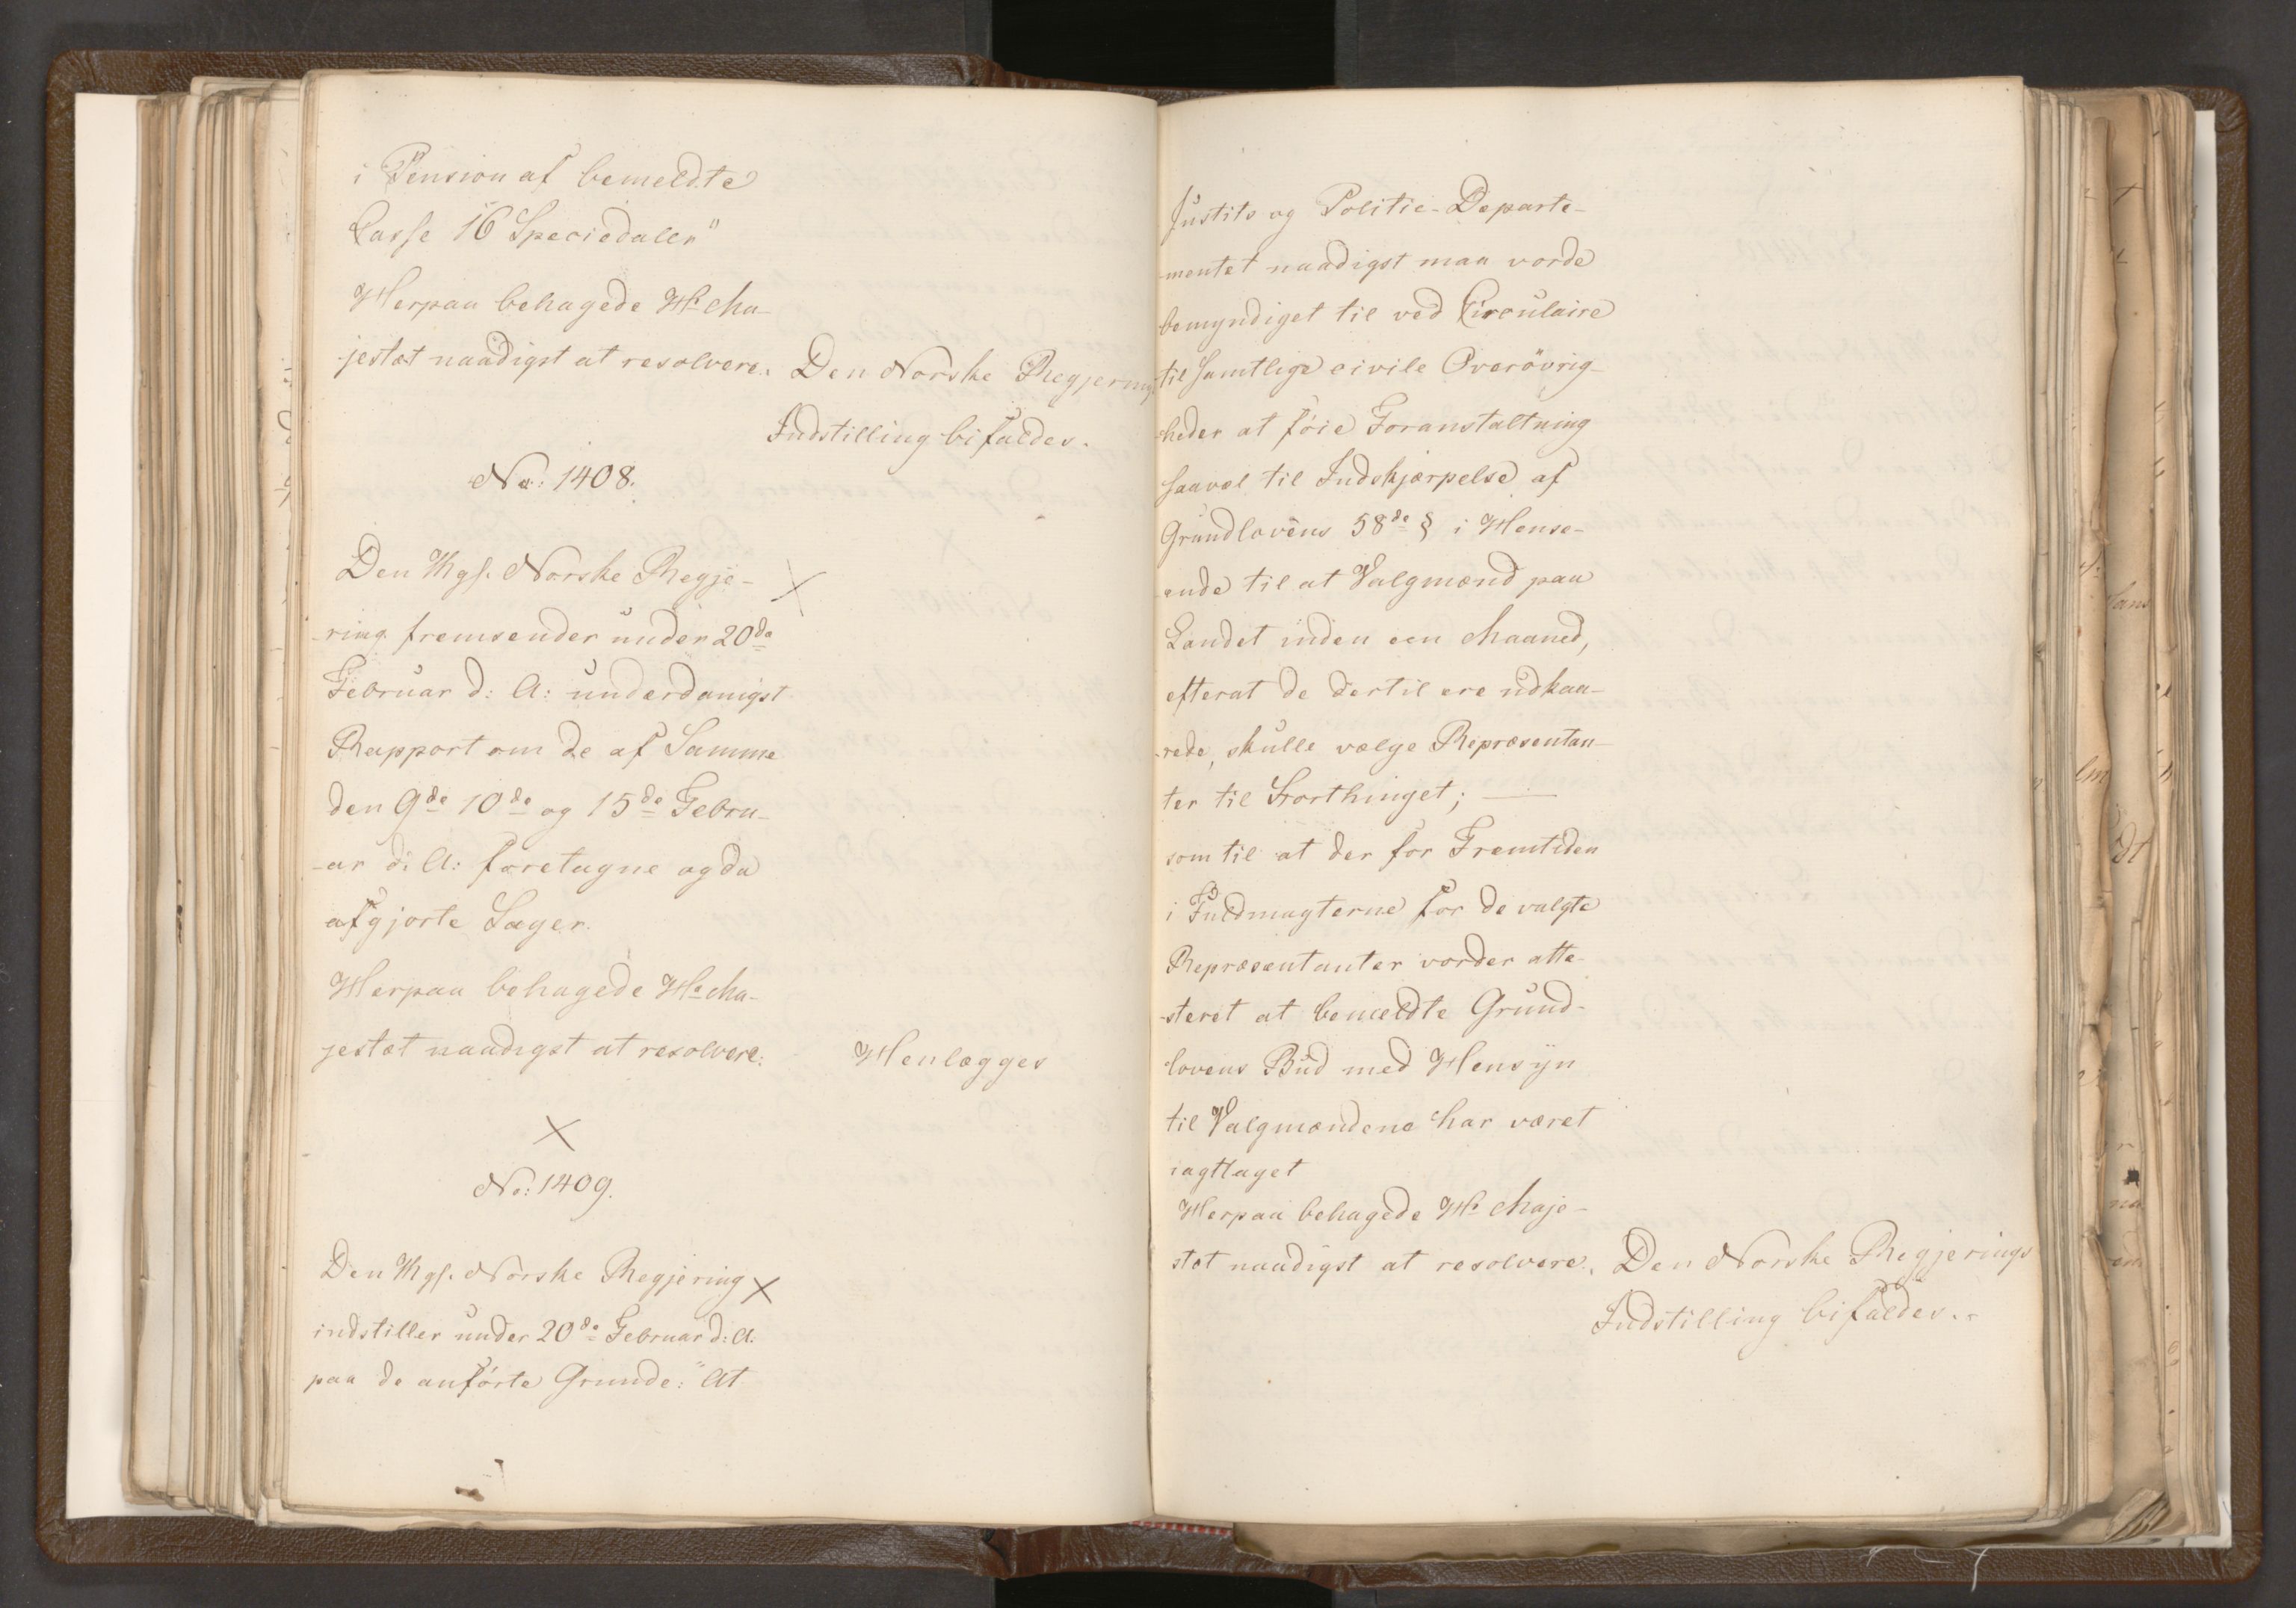 i Pension af bemeldte
Casse 16 Speciedaler"
Herpaa behagede Hs Ma-
jestæt naadigst at resolvere. Den Norske Regjerings
Indstilling bifaldes.
No: 1408.
Den Kgl. Norske Regje-
-ring fremsender under 20de
Februar d: A: underdanigst
Rapport om de af Samme
den 9de 10de og 15de Febru-
-ar d: A: foretagne og da
afgjorte Sager.
Herpaa behagede Hs Ma-
jestæt naadigst at resolvere: Henlægges
No: 1409.
Den Kgl. Norske Regjering
indstiller under 20de Februar d: A:
paa de anførte Grunde: "At
Justits og Politie-Departe-
-mentet naadigst maa vorde
bemyndiget til ved Circulaire
til samtlige civile Overövrig-
-heder at föie Foranstaltning
saavel til Indskjærpelse af
Grundlovens 58de § i Hense-
-ende til at Valgmænd paa
Landet inden een Maaned,
efterat de dertil ere udkaa-
-rede, skulle vælge Repræsentan-
ter til Storthinget; —
som til at der for Fremtiden
i Fuldmagterne for de valgte
Repræsentanter vorder atte-
-steret at bemeldte Grund-
lovens Bud med Hensyn
til Valgmændene har været
iagttaget
Herpaa behagede Hs Maje-
stæt naadigst at resolvere. Den Norske Regjerings
Indstilling bifaldes..